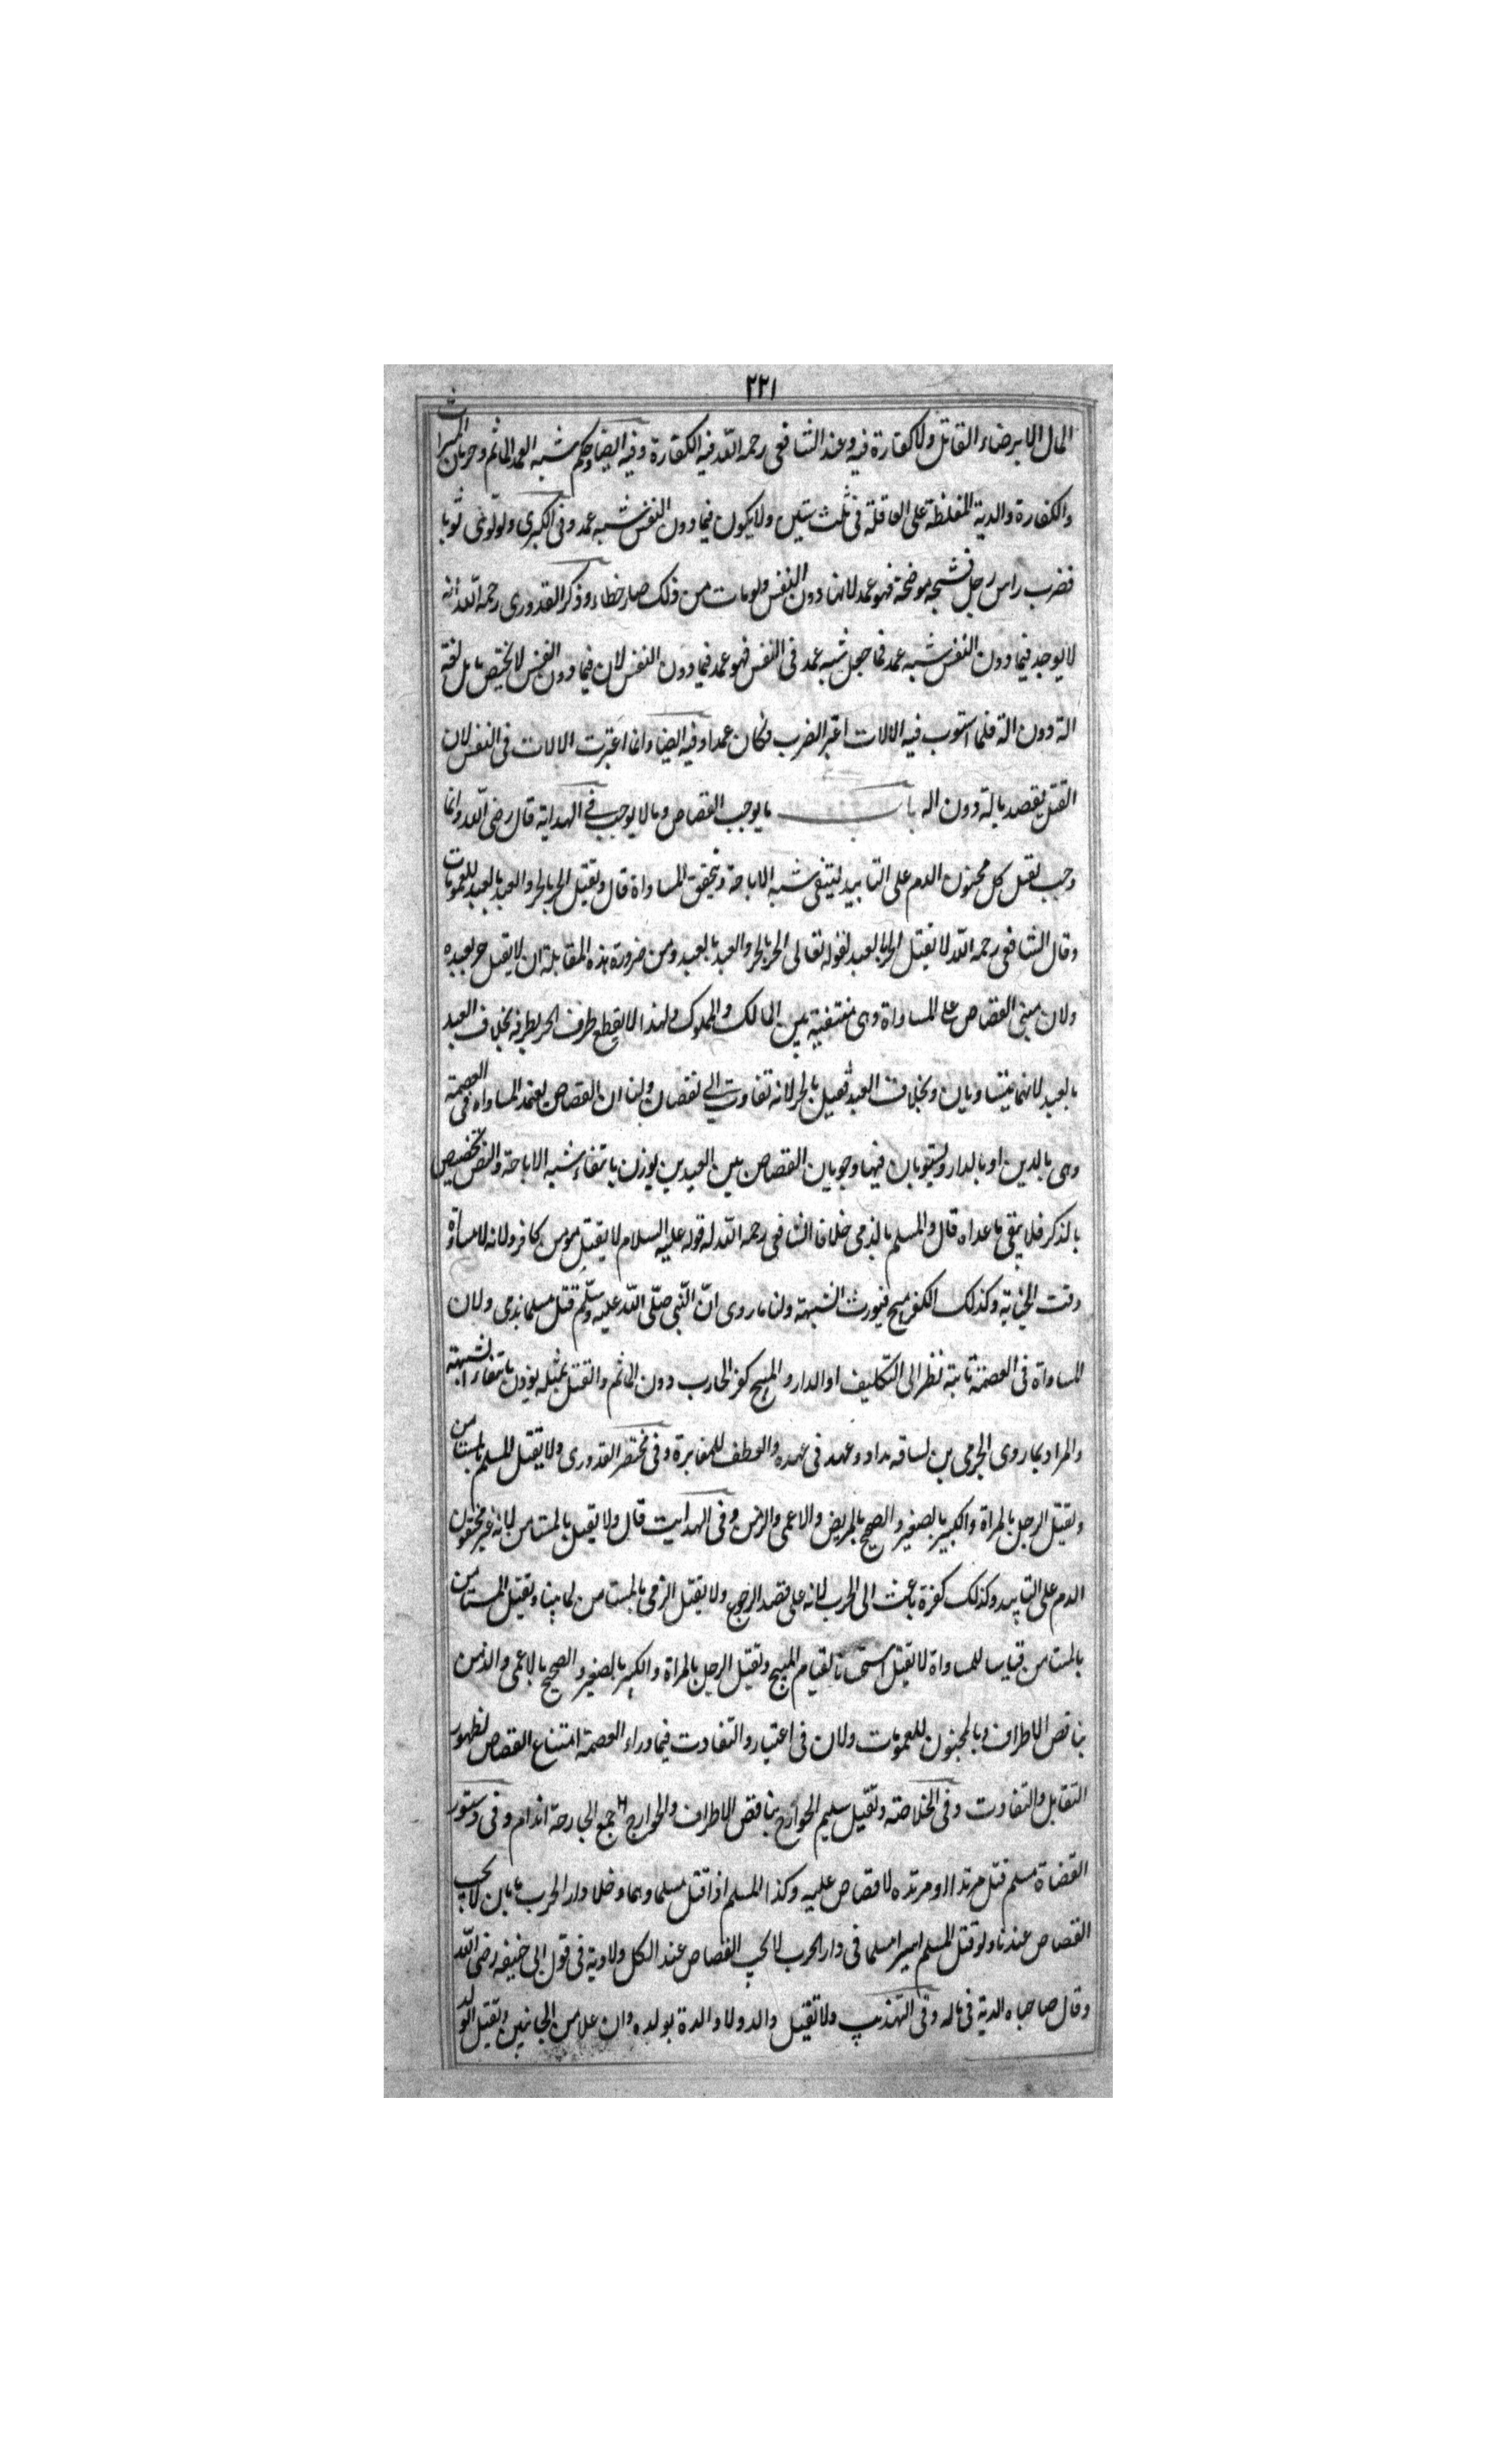 ٢٢١
المال الا برضاء القاتل ولا كفارة فيه وعند الشافعى رحمه الله فيه الكفارة وفيه ايضا وحكم شبه العمد الماثم وحرمان الميراث
والكفارة والدية المغلظة على العاقلة فى ثلث سنين ولا يكون فيما دون النفس شبه عمد وفى الكبرى ولو لوى ثوبا
فضرب راس رجل فشجه موضحة فهو عمد لانها دون النفس ولو مات من ذلك صار خطاء وذكر القدورى رحمه الله انه
لا يوجد فيما دون النفس شبه عمد فما جعل شبه عمد فى النفس فهو عمد فيما دون النفس لان فيما دون النفس لا يختص باتلافه
الة دون الة فلما استوت فيه الالات اعتبر الضرب فكان عمدا وفيه ايضا وانما اعتبرت الالات فى النفس لان
القتل يقصد بالة دون اله باب ما يوجب القصاص وما لا يوجب فى الهداية قال رضى الله وانما
وجب بقتل كل محقون الدم على التابيد لينتفى شبه الاباحة ويتحقق المساواة قال ويقتل الحر بالحر والعبد بالعبد للعمومات
وقال الشافعى رحمه الله لا يقتل الحر بالعبد لقوله تعالى الحر بالحر والعبد بالعبد ومن ضرورة هذه المقابلة ان لا يقتل حر بعبده
ولان مبنى القصاص على المساواة وهى منتفية بين المالك والمملوك ولهذا لا يقطع طرف الحر بطرفه بخلاف العبد
بالعبد لانهما يتساويان وبخلاف العبد فيقتل بالحر لانه تفاوت الى نقصان ولنا ان القصاص يعتمد المساواة فى العصمة
وهى بالدين او بالدار ويستويان فيهما وجريان القصاص بين العبدين يوذن بانتفاء شبه الاباحة والنص تخصيص
بالذكر فلا ينفى ما عداه قال والمسلم بالذمى خلافا الشافعى رحمه الله له قوله عليه السلام لا يقتل مومن بكافر ولانه لا مساواة
وقت الجناية وكذلك الكفر مبيح فيورث الشبهة ولنا ما روى انّ النّبى صلّى الله عليه وسلّم قتل مسلما بذمى ولان
المساواة فى العصمة ثابتة نظر الى التكليف او الدار والمبيح كفر المحارب دون المسالم والقتل بمثله يوذن بانتفاء الشبهة
والمراد بما روى الحربى لساقه ولا ذو عهد فى عهده والعطف للمغايرة وفى مختصر القدورى ولا يقتل المسلم بالمستامن
ويقتل الرجل بالمراة والكبير بالصغير والصحيح بالمريض والاعمى والزمن وفى الهدايت قال ولا يقتل بالمستامن لانه غير محقون
الدم على التابيد وكذلك كفره باعث الى الحرب لانه على قصد الرجوع ولا يقتل الذمى بالمستامن لما بينا ويقتل المستامن
بالمستامن قياسا للمساواة لا يقتل استحسانا لقيام المبيح ويقتل الرجل بالمراة والكبير بالصغير والصحيح بالاعمى والذمن
بناقص الاطراف وبالمجنون للعمومات ولان فى اعتبار والتفاوت فيما وراء العصمة امتناع القصاص لظهور
التقابل والتفاوت وفى الخلاصته ويقتل سليم الجوارح بناقص الاطراف والجوارح جمع الجارحة اندام وفى دستور
القضاة مسلم قتل مرتدا او مرتده لا قصاص عليه وكذا المسلم اذا قتل مسلما وهما دخلا دار الحرب بامان لا يجب
القصاص عندنا ولو قتل المسلم اسيرا مسلما فى دار الحرب لا يجب القصاص عند الكل ولا دية فى قول ابى حنيفه رضى الله
وقال صاحباه الدية فى ماله وفى التهذيب ولا يقتل والد ولا والدة بولده وان علا من الجانبين ويقتل الولد